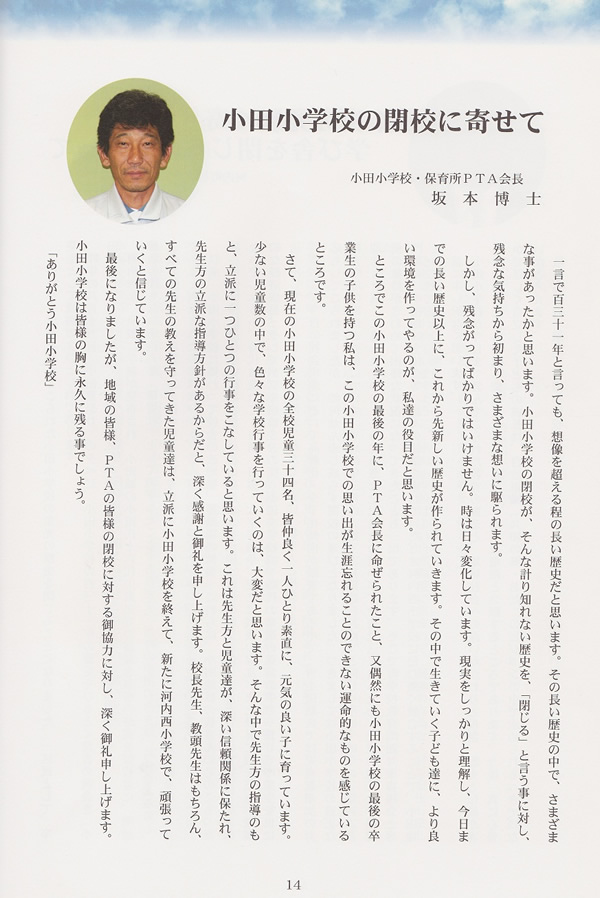 小田小学校の閉校に寄せて
小田小学校・保育所ＰＴＡ会長
坂本博士
一言で百三十一年と言っても、想像を超える程の長い歴史だと思います。その長い歴史の中で、さまざま
な事があったかと思います。小田小学校の閉校が、そんな計り知れない歴史を、「閉じる」と言う事に対し、
残念な気持ちから初まり、さまざまな想いに駆られます。
しかし、残念がってばかりではいけません。時は日々変化しています。現実をしっかりと理解し、今日ま
での長い歴史以上に、これから先新しい歴史が作られていきます。その中で生きていく子ども達に、より良
い環境を作ってやるのが、私達の役目だと思います。
ところでこの小田小学校の最後の年に、ＰＴＡ会長に命ぜられたこと、又偶然にも小田小学校の最後の卒
業生の子供を持つ私は、この小田小学校での思い出が生涯忘れることのできない運命的なものを感じている
ところです。
さて、現在の小田小学校の全校児童三十四名、皆仲良く一人ひとり素直に、元気の良い子に育っています。
少ない児童数の中で、色々な学校行事を行っていくのは、大変だと思います。そんな中で先生方の指導のも
と、立派に一つひとつの行事をこなしていると思います。これは先生方と児童達が、深い信頼関係に保たれ、
先生方の立派な指導方針があるからだと、深く感謝と御礼を申し上げます。校長先生、教頭先生はもちろん、
すべての先生の教えを守ってきた児童達は、立派に小田小学校を終えて、新たに河内西小学校で、頑張って
いくと信じています。
最後になりましたが、地域の皆様、ＰＴＡの皆様の閉校に対する御協力に対し、深く御礼申し上げます。
小田小学校は皆様の胸に永久に残る事でしょう。
「ありがとう小田小学校」
14